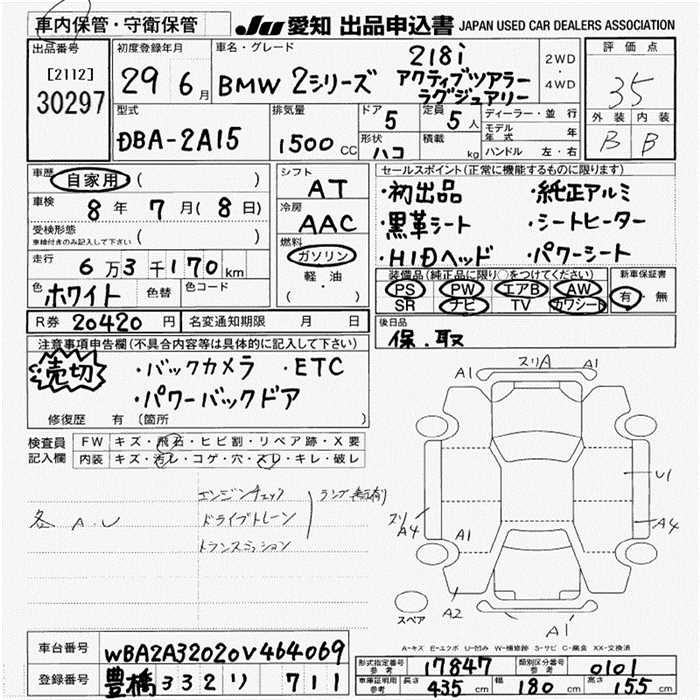 車内保管・守衛保管
JU 愛知 出品申込書 JAPAN USED CAR DEALERS ASSOCIATION
出品番号
[2112]
30297
初度登録年月
29 6月
車名・グレード
BMW 2シリーズ
218i
アクティブツアラー
ラグジュアリー
2WD
・
4WD
評価点
35
外装 内装
B B
型式
DBA-2A15
排気量
1500 CC
ドア 5
定員 5 人
形状 ハコ
積載 kg
ディーラー・並行
モデル年式 年
ハンドル 左・右
車歴 自家用 ( )
車検 8年 7月 (8日)
受検形態
車検付きのみ記入して下さい ( )
走行 6万3千170km
色 ホワイト 色替 色コード
シフト
AT
冷房
AAC
燃料
ガソリン
軽・油
( )
セールスポイント(正常に機能するものに限ります)
・初出品 ・純正アルミ
・黒革シート ・シートヒーター
・HIDヘッド ・パワーシート
装備品(純正品に限り○をつけてください)
PS PW エアB AW
SR ナビ TV カワシート
新車保証書
有・無
R券 20420 円 名変通知期限 月 日
後日品
保.取
注意事項申告欄(不具合内容等は具体的に記入して下さい)
売切 ・バックカメラ ・ETC
・パワーバックドア
修復歴 有 (箇所 )
検査員記入欄
FW キズ・飛石・ヒビ割・リペア跡・X要
内装 キズ・汚レ・コゲ・穴・スレ・キレ・破レ
各 A.U
エンジンチェック
ドライブトレーン
トランスミッション
A1 スリA A1
U1
スリA4 A1 A4
A2 A1
スペア
A-キズ E-エクボ U-凹み W-補修跡 S-サビ C-腐食 XX-交換済
車台番号 WBA2A32020V464069
登録番号 豊橋 332 リ 711
形式指定番号 参考 17847 類別区分番号 参考 0101
車庫証明用 参考 長さ 435 cm 幅 180 cm 高さ 155 cm